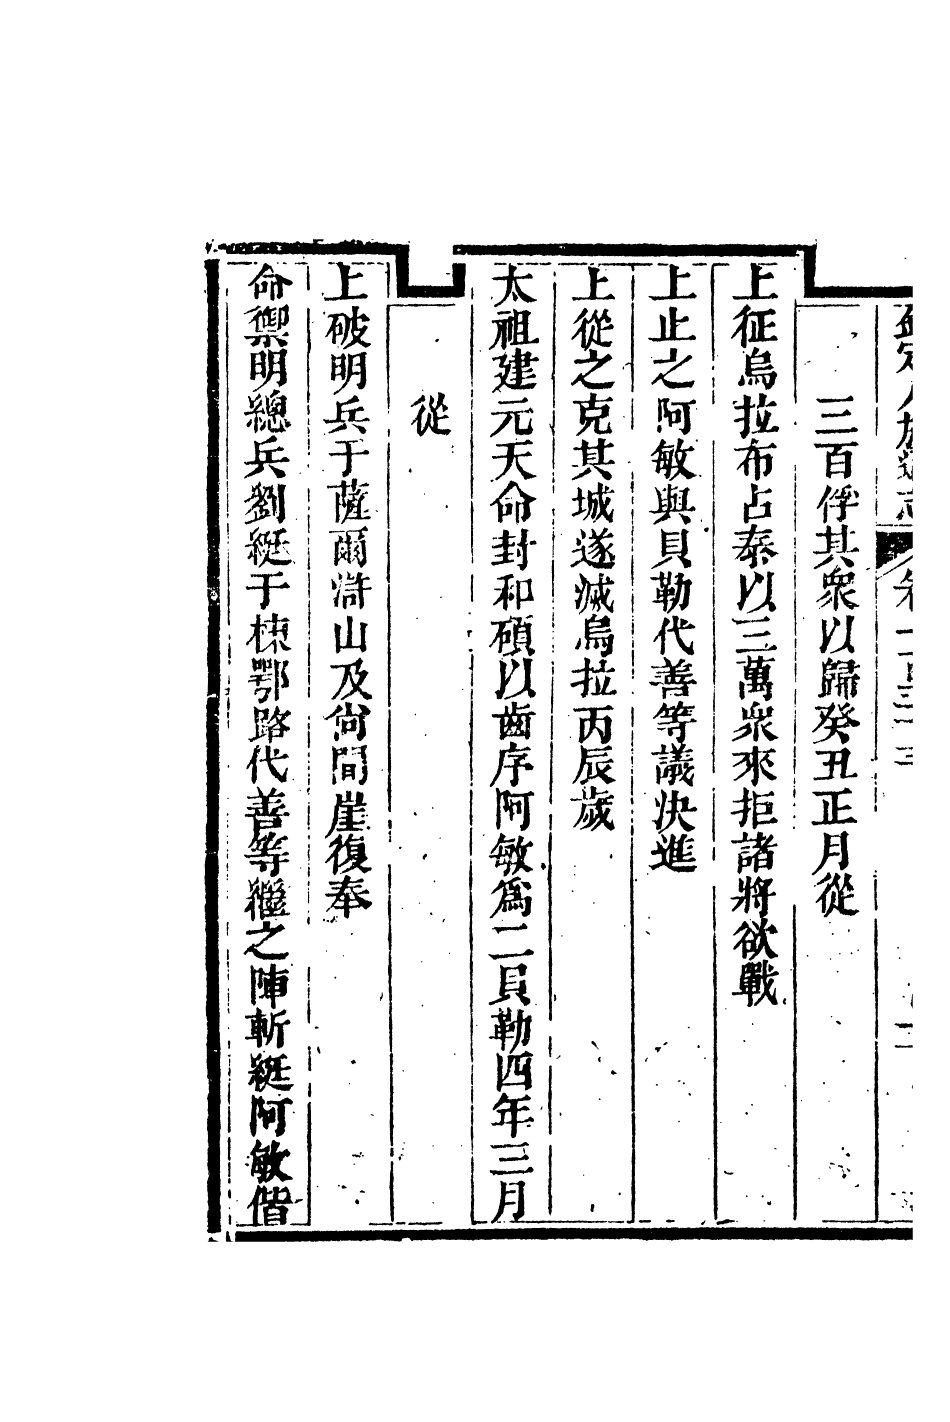 三百俘其衆以歸癸丑正月從
上征烏拉布占泰以三萬衆來拒諸將欲戰
上止之阿敏與貝勒代善等議決進
上從之克其城遂滅烏拉丙辰歲
太祖建元天命封和碩以齒序阿敏爲二貝勒四年三月
從
上破明兵于薩爾滸山及尙間崖復奉
命禦明總兵劉綎于棟鄂路代善等繼之陣斬綎阿敏偕